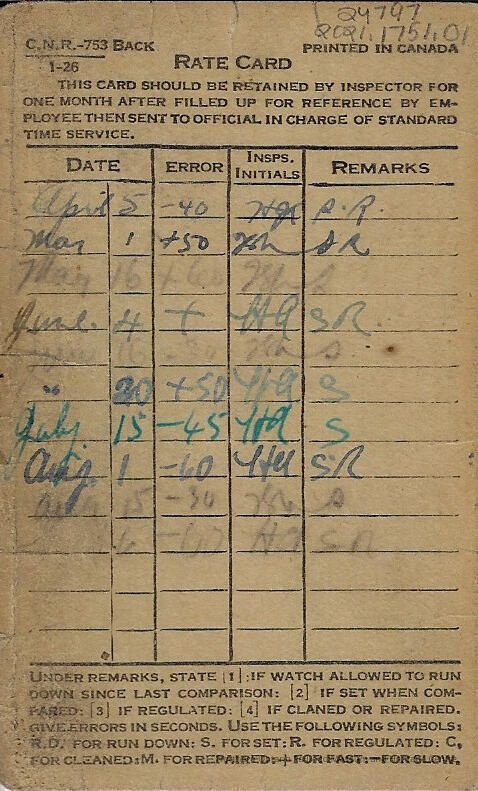 24797
2021.1751.01
C.N.R.-753 BACK
PRINTED IN CANADA
1-26
RATE CARD
THIS CARD SHOULD BE RETAINED BY INSPECTOR FOR
ONE MONTH AFTER FILLED UP FOR REFERENCE BY EM-
PLOYEE THEN SENT TO OFFICIAL IN CHARGE OF STANDARD
TIME SERVICE.
DATE ERROR INSPS. INITIALS REMARKS
April 5 -40 S.R.
May 1 +50 SR
May 16 +60 S
June 4 + HQ SR.
16 S
" 20 +50 HQ S
July 15 -45 HQ S
Aug. 1 -60 SR
Aug 15 -30 S
SR
UNDER REMARKS, STATE [1]:IF WATCH ALLOWED TO RUN
DOWN SINCE LAST COMPARISON: [2] IF SET WHEN COM-
PARED: [3] IF REGULATED: [4] IF CLANED OR REPAIRED.
GIVE ERRORS IN SECONDS. USE THE FOLLOWING SYMBOLS:
R.D. FOR RUN DOWN: S. FOR SET: R. FOR REGULATED: C,
FOR CLEANED: M. FOR REPAIRED: + FOR FAST: - FOR SLOW.